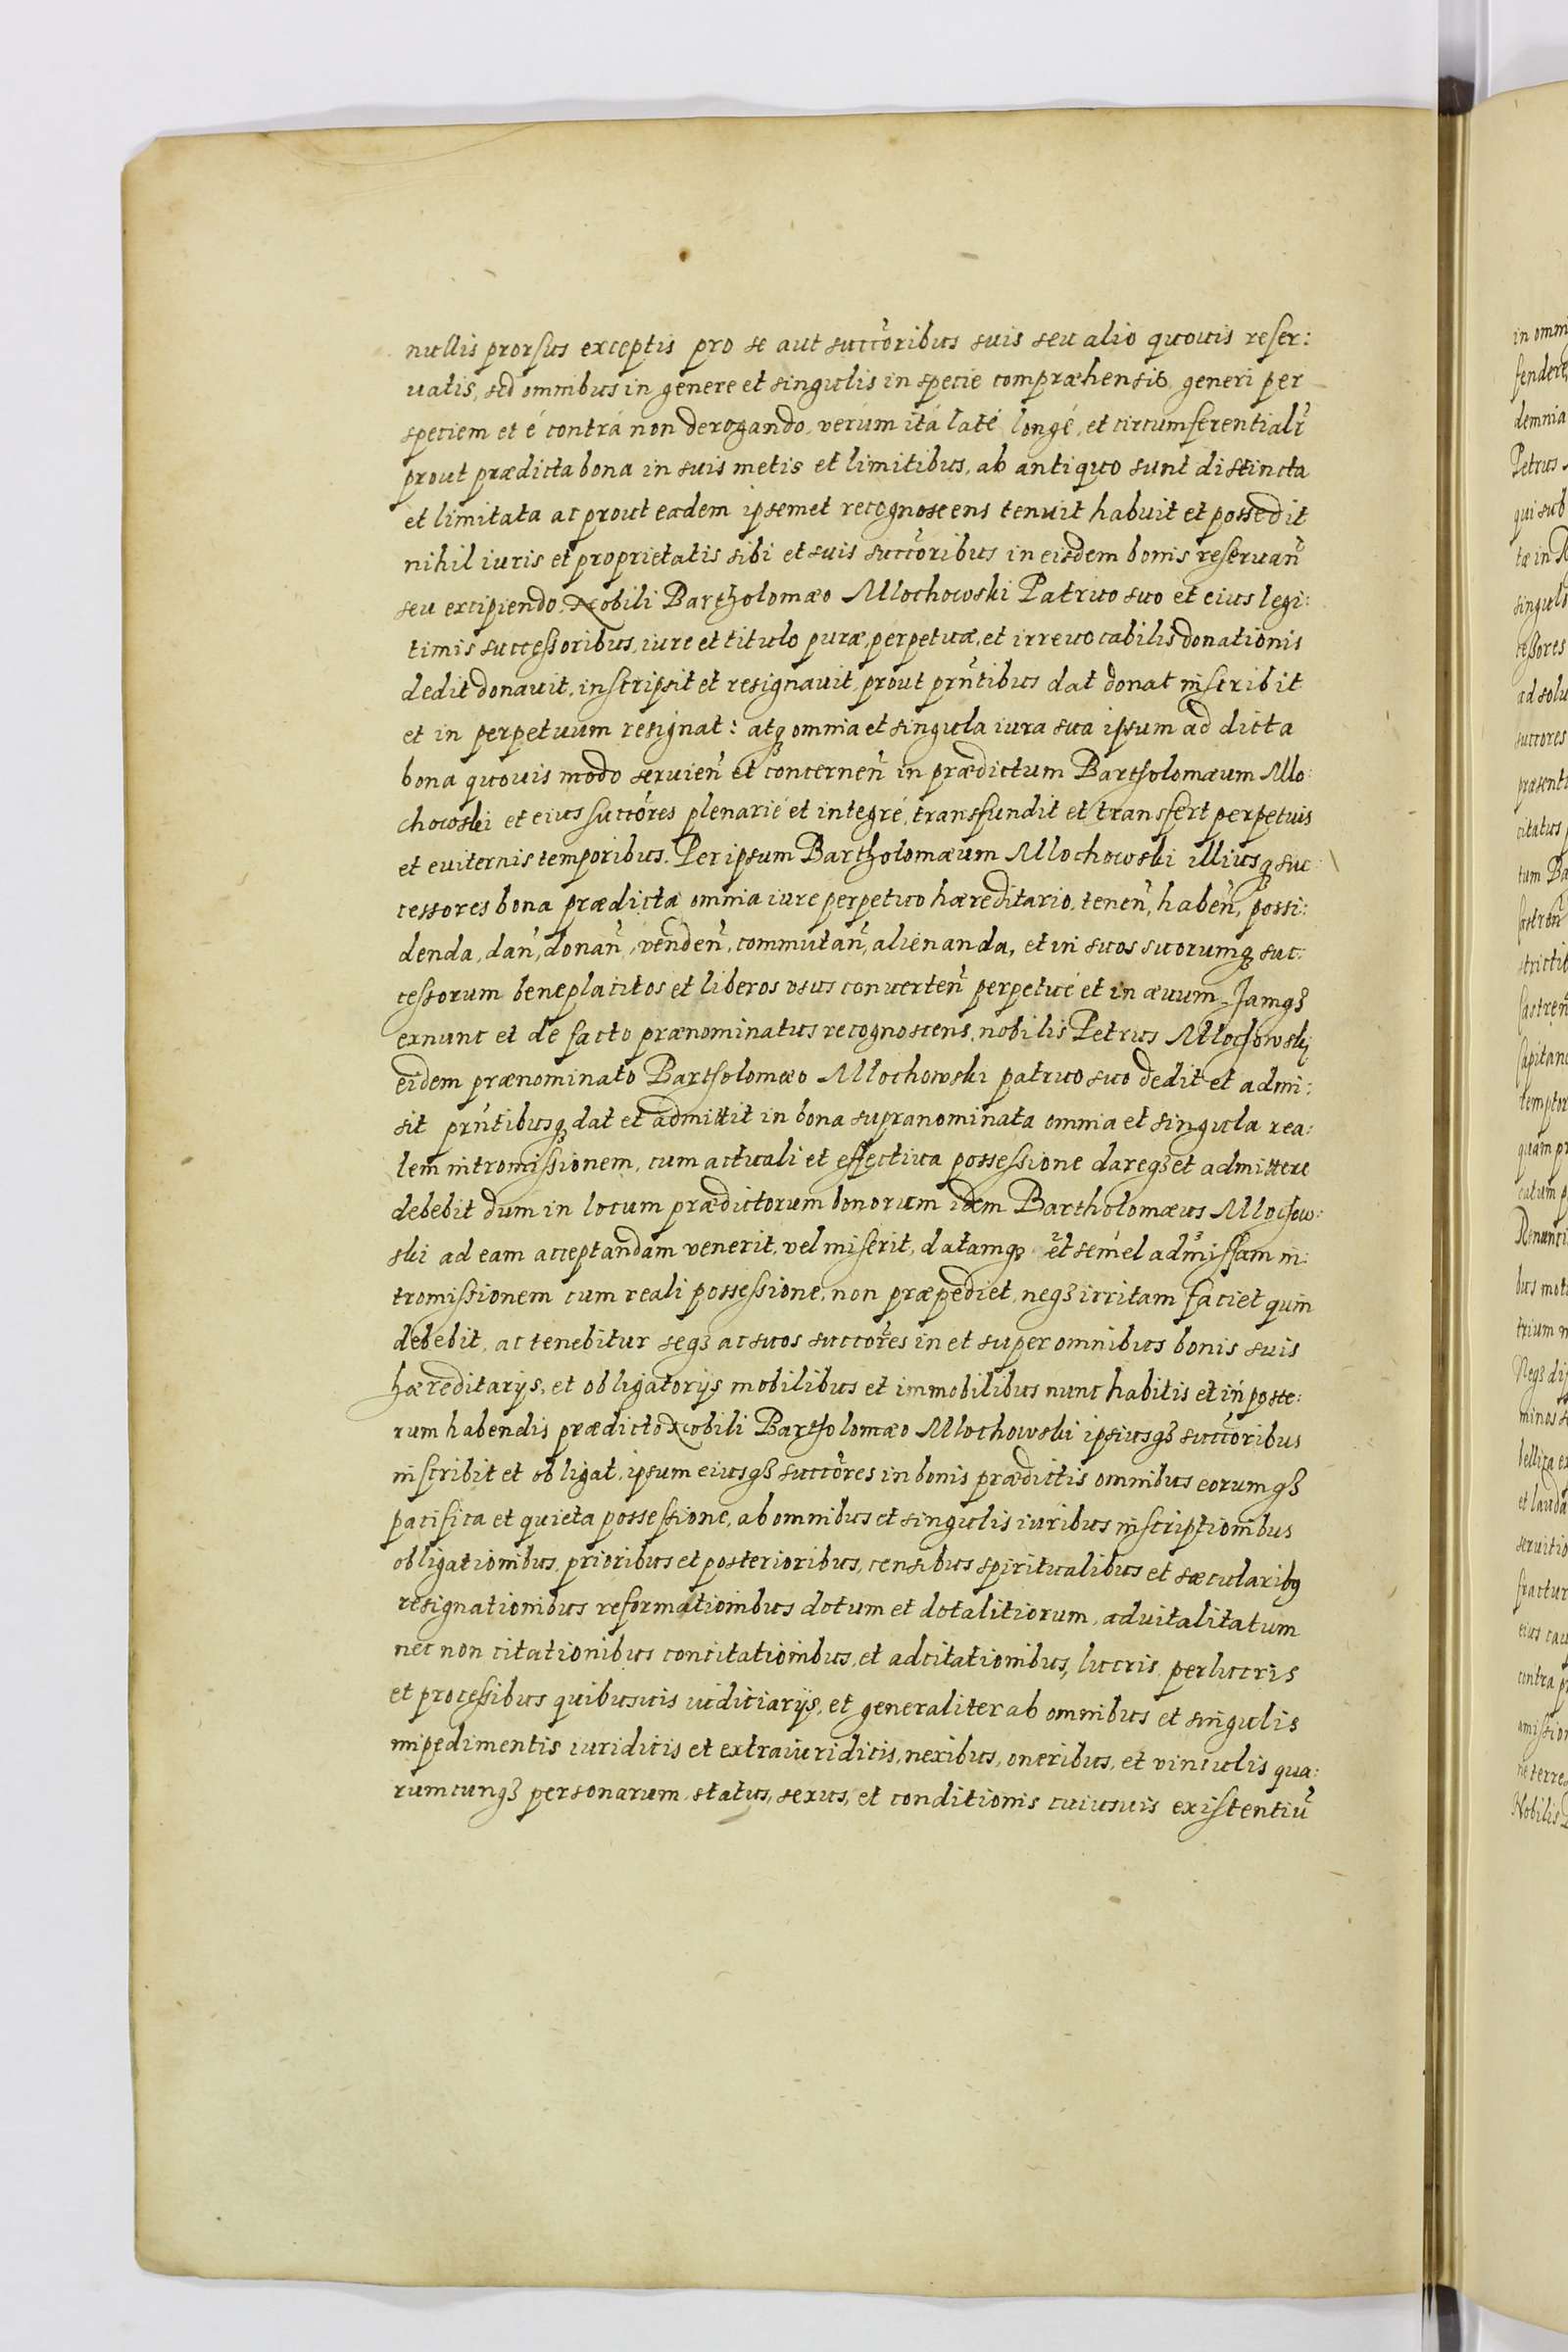 nullis prorsus exceptis pro se aut succ̃oribus suis seu alio quouis reser:
uatis, sed omnibus in genere et singulis in specie compræhensis, generi per
speciem et é contrá non derogando, verùm itá laté longé, et circumferentialr̃
prout prædicta bona in suis metis et limitibus, ab antiquo sunt distincta
et limitata ac prout eadem ipsemet recognoscens tenuit habuit et possedit
nihil iuris et proprietatis sibi et suis succ̃oribus in eisdem bonis reseruan̄
seu excipiendo, Nobili Bartholomæo Mlochowski Patruo suo et eius legi:
timis successoribus, iure et titulo puræ, perpetuæ, et irreuocabilis donationis
dedit donauit, inscripsit et resignauit, prout prñtibus dat donat inscribit
et in perpetuum resignat: atq̃ omnia et singula iura sua ipsum ad dicta
bona quouis modo seruien̄ et concernen̄ in prædictum Bartholomæum Mlo:
chowski et eius succ̃ores plenarié et integré, transfundit et transfert perpetuis
et euiternis temporibus. Per ipsum Bartholomæum Mlochowski illiusq̃ suc:
cessores bona prædicta omnia iure perpetuo hæreditario, tenen̄, haben̄, possi:
denda, dan̄, donan̄, venden̄, commutan̄, alienanda, et in suos suorumq̃ suc:
cessorum beneplacitos et liberos vsus conuerten̄ perpetué et in æuum. Iamq₃
exnunc et de facto prænominatus recognoscens, nobilis Petrus Mlochowski
eidem prænominato Bartholomæo Mlochowski patruo suo dedit et admi:
sit prñtibusq̃ dat et admittit in bona supranominata omnia et singula rea:
lem intromissionem, cum actuali et effectiua possessione dareq₃ et admittere
debebit dum in locum prædictorum bonorum idem Bartholomæus Mlochow:
ski ad eam acceptandam venerit, vel miserit, datamq₃ et semel admissam in:
tromissionem cum reali possessione, non præpediet, neq₃ irritam faciet quin
debebit, ac tenebitur seq₃ ac suos succ̃ores in et super omnibus bonis suis
hæreditarijs, et obligatorijs mobilibus et immobilibus nunc habitis et in poste:
rum habendis prædicto Nobili Bartholomæo Mlochowski ipsiusq₃ succ̃oribus
inscribit et obligat, ipsum eiusq₃ succ̃ores in bonis prædictis omnibus eorumq₃
pacifica et quieta possessione, ab omnibus et singulis iuribus inscriptionibus
obligationibus, prioribus et posterioribus, censibus spiritualibus et sæcularibꝯ
resignationibus reformationibus dotum et dotalitiorum, aduitalitatum
nec non citationibus concitationibus, et adcitationibus, lucris, perlucris
et processibus quibusuis iudiciarijs, et generaliter ab omnibus et singulis
impedimentis iuridicis et extraiuridicis, nexibus, oneribus, et vinculis qua:
rumcunq₃ personarum, status, sexus, et conditionis cuiusuis existentiũ